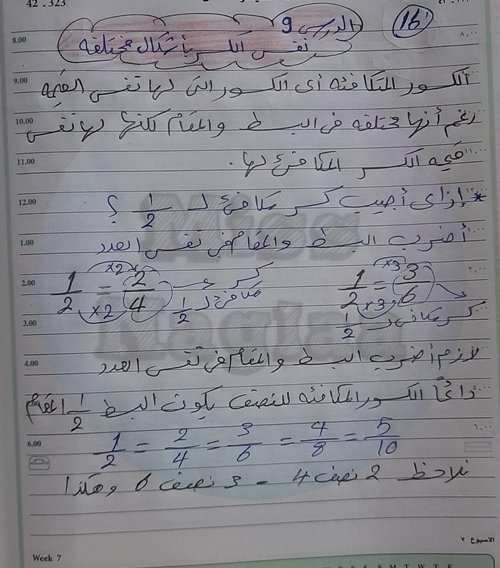 42 . 323.
16
الدرس 9
نفس الكسر بأشكال مختلفه
8.00
الكسور المتكافئه أى الكسور التى لها نفس القيمه
9.00
رغم أنها مختلفه فى البسط والمقام لكنها لها نفس
10.00
قيمه الكسر المكافئ لها.
11.00
* ازاى أجيب كسر مكافئ لـ 1/2 ؟
12.00
أضرب البسط والمقام فى نفس العدد
1.00
1/2 = 2/4 ×2 ×2 كسر مكافئ لـ 1/2
1/2 = 3/6 ×3 ×3 كسر مكافئ لـ 1/2
2.00
3.00
لازم أضرب البسط والمقام فى نفس العدد
4.00
دائماً الكسور المكافئه للنصف يكون البسط 1/2 المقام
1/2 = 2/4 = 3/6 = 4/8 = 5/10
6.00
نلاحظ 2 نصف 4 - 3 نصف 6 وهكذا
Miss Naglaa
الاسبوع ٧
Week 7
M T W T F S S M T W T F